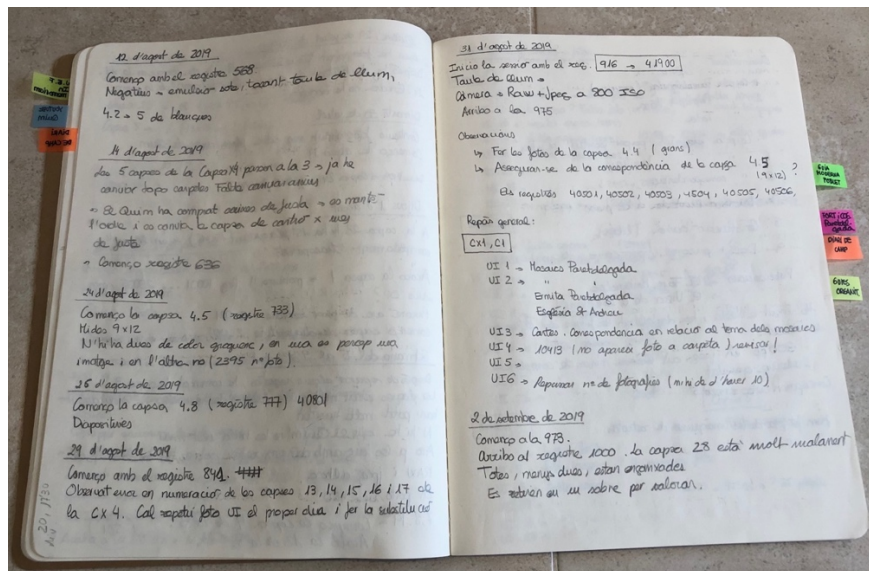 12 d'agost de 2019
Començo amb el registre 568
Negatius → emulsió sota, tocant taula de llum,
4.2 → 5 de blanques
14 d'agost de 2019
Les 5 capses de la Capsa 4 passen a la 3 → ja he
canviat dopo carpetes Falta
→ El Quim ha comprat caixes de fusta → es manté
l'ordre i es canvia la capsa de cartró x una
de fusta
→ Començo registre 636
24 d'agost de 2019
Començo la capsa 4.5 (registre 733)
Mides 9x12
N'hi ha dues de color, en una es percep una
imatge i en l'altra no (2395 nº foto).
26 d'agost de 2019
Començo la capsa 4.8 (registre 777) 40801
Diapositives
29 d'agost de 2019
Començo amb el registre 841.
Observat error en numeració de les capses 13, 14, 15, 16 i 17 de
la Cx 4. Cal repetir foto UI el proper dia i fer la substitució
31 d'agost de 2019
Inicio la sessió amb el reg. 916 → 41900
Taula de llum →
Càmera → Raw + Jpeg a 800 ISO
Arribo a la 975
Observacions
↳ Fer les fotos de la capsa 4.4 (grans)
↳ Assegurar-se de la correspondència de la capsa 4.5 ?
(9x12)
Els registres 40501, 40502, 40503, 4504, 40505, 40506,
Repàs general:
Cx1, C1
UI 1 → Mosaics Puigdelgada
UI 2 → " "
Ermita Puigdelgada
Església St Andreu
UI 3 → Cartes. Correspondència en relació al tema dels mosaics
UI 4 → 10413 (no apareix foto a carpeta) revisar!
UI 5 →
UI 6 → Repassar nº de fotografies (n'hi ha d'haver 10)
2 de setembre de 2019
Començo a la 978.
Arribo al registre 1000. La capsa 28 està molt malament
Totes, menys dues, estan enganxades
Es retiren en un sobre per valorar.
DIARI DE
CAMP